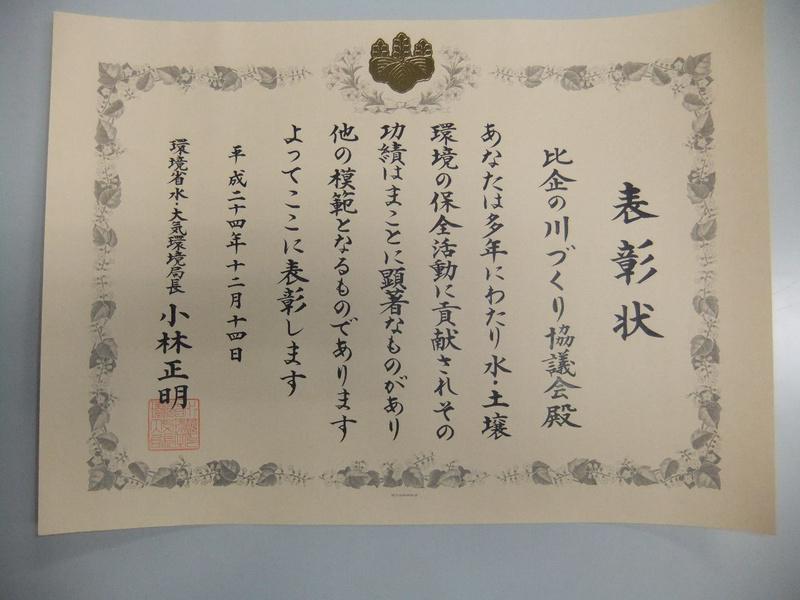 表彰状
比企の川づくり協議会殿
あなたは多年にわたり水・土壌
環境の保全活動に貢献されその
功績はまことに顕著なものがあり
他の模範となるものであります
よってここに表彰します
平成二十四年十二月十四日
環境省水・大気環境局長 小林正明